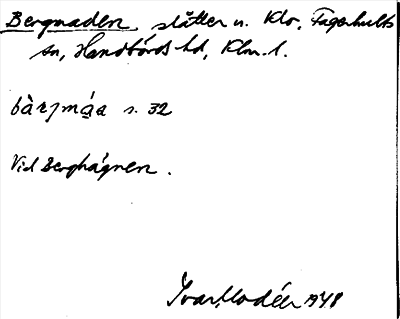 Bergmaden, slåtter u. Klo, Fagerhults
sn, Handbörds hd, Klm. l.
bàrʒmáa s. 32
Vid Berghagnen.
Ivar Modéer 1948